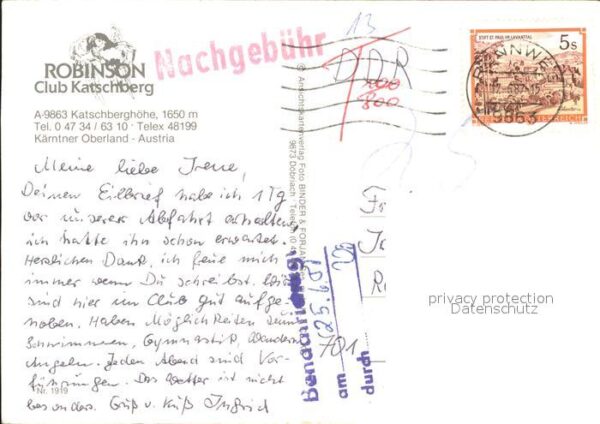 ROBINSON
Club Katschberg
A-9863 Katschberghöhe, 1650 m
Tel. 0 47 34 / 63 10 · Telex 48199
Kärntner Oberland - Austria
Nachgebühr
13
DDR
200
800
25
STIFT ST. PAUL IM LAVANTTAL
5s
RENNWE
9863
Meine liebe Irene,
Deinen Eilbrief habe ich 1 Tg
vor unserer Abfahrt erhalten,
ich hatte ihn schon erwartet.
Herzlichen Dank, ich freue mich
immer wenn Du schreibst. Wir
sind hier im Club gut aufge-
hoben. Haben Möglichkeiten zum
Schwimmen, Gymnastik, Wandern
Angeln. Jeden Abend sind Vor-
führungen. Das Wetter ist nicht
besonders. Gruß u. Kuß Ingrid
Nr. 1919
© Ansichtskartenverlag Foto BINDER &
9873 Döbriach · Telefon (0 4
am
701
durch
privacy protection
Datenschutz